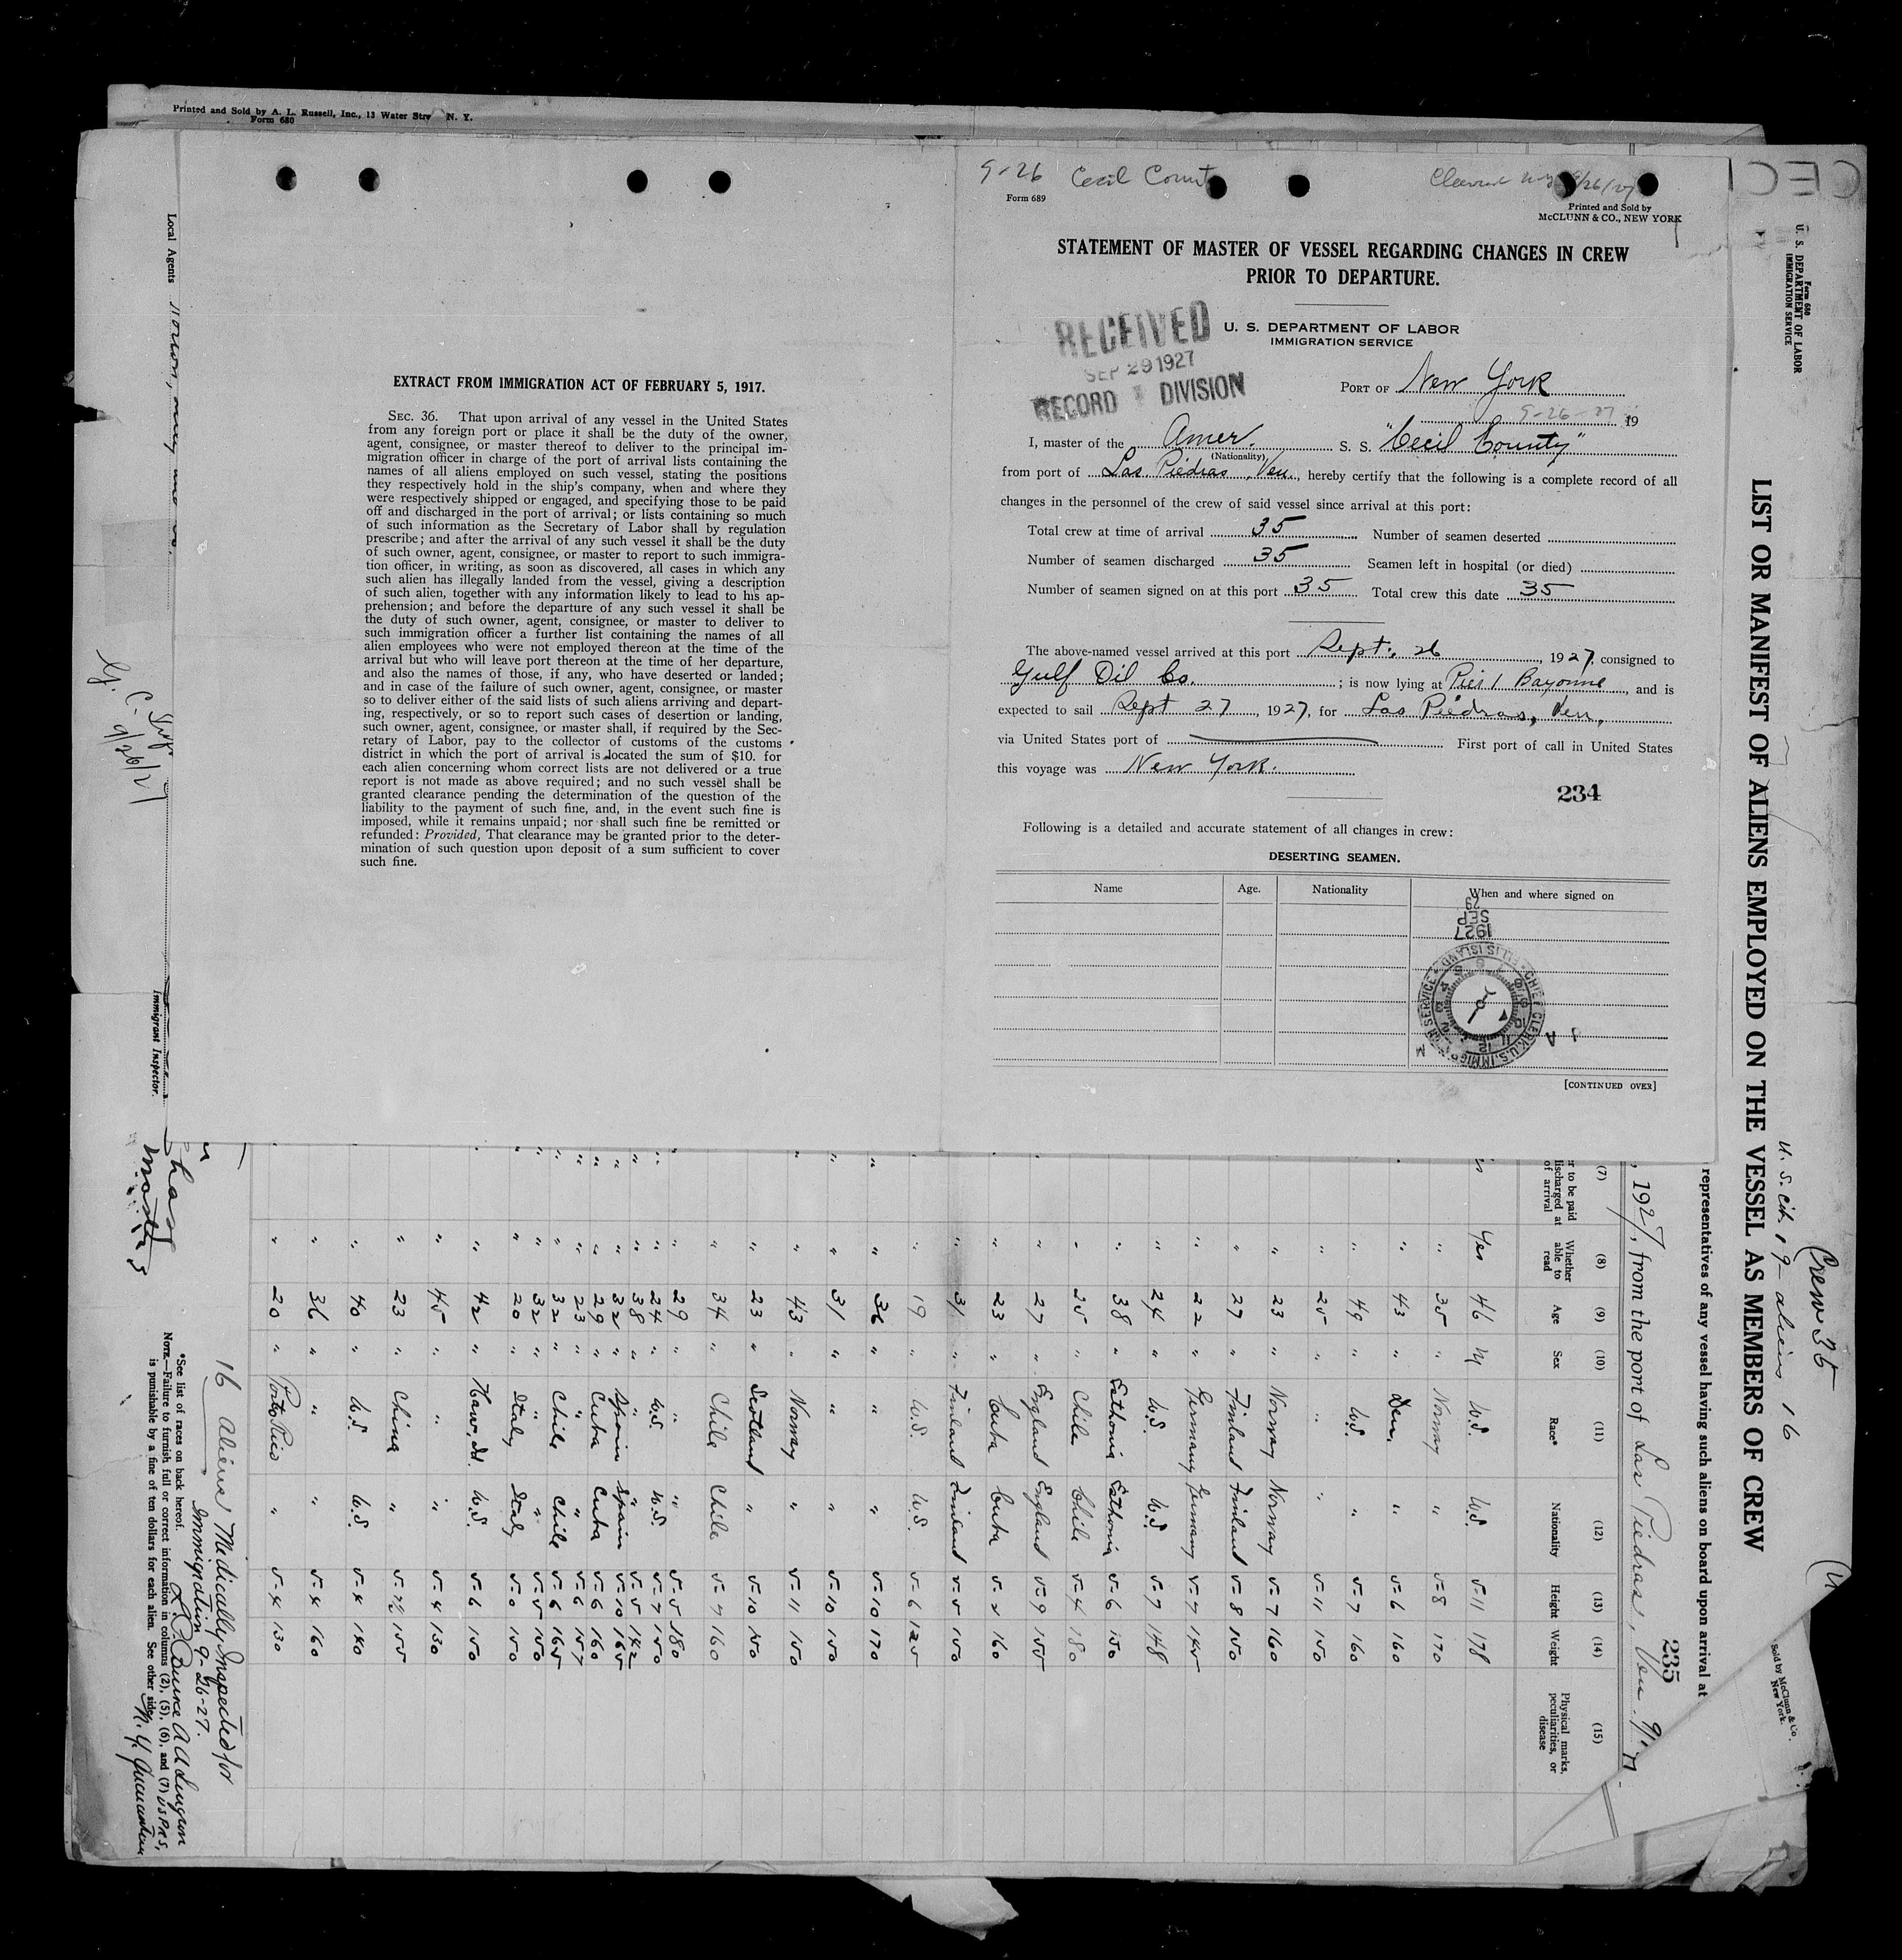 Printed and Sold by A. L. Russell, Inc., 13 Water Stre N. Y.
Form 680
Local Agents
G. C.
9/26/27
Immigrant Inspector.
EXTRACT FROM IMMIGRATION ACT OF FEBRUARY 5, 1917.
SEC. 36. That upon arrival of any vessel in the United States
from any foreign port or place it shall be the duty of the owner,
agent, consignee, or master thereof to deliver to the principal im-
migration officer in charge of the port of arrival lists containing the
names of all aliens employed on such vessel, stating the positions
they respectively hold in the ship's company, when and where they
were respectively shipped or engaged, and specifying those to be paid
off and discharged in the port of arrival; or lists containing so much
of such information as the Secretary of Labor shall by regulation
prescribe; and after the arrival of any such vessel it shall be the duty
of such owner, agent, consignee, or master to report to such immigra-
tion officer, in writing, as soon as discovered, all cases in which any
such alien has illegally landed from the vessel, giving a description
of such alien, together with any information likely to lead to his ap-
prehension; and before the departure of any such vessel it shall be
the duty of such owner, agent, consignee, or master to deliver to
such immigration officer a further list containing the names of all
alien employees who were not employed thereon at the time of the
arrival but who will leave port thereon at the time of her departure,
and also the names of those, if any, who have deserted or landed;
and in case of the failure of such owner, agent, consignee, or master
so to deliver either of the said lists of such aliens arriving and depart-
ing, respectively, or so to report such cases of desertion or landing,
such owner, agent, consignee, or master shall, if required by the Sec-
retary of Labor, pay to the collector of customs of the customs
district in which the port of arrival is located the sum of $10. for
each alien concerning whom correct lists are not delivered or a true
report is not made as above required; and no such vessel shall be
granted clearance pending the determination of the question of the
liability to the payment of such fine, and, in the event such fine is
imposed, while it remains unpaid; nor shall such fine be remitted or
refunded: Provided, That clearance may be granted prior to the deter-
mination of such question upon deposit of a sum sufficient to cover
such fine.
9-26 Cecil County
9/26/27
Form 689
Printed and Sold by
McCLUNN & CO., NEW YORK
STATEMENT OF MASTER OF VESSEL REGARDING CHANGES IN CREW
PRIOR TO DEPARTURE.
U. S. DEPARTMENT OF LABOR
IMMIGRATION SERVICE
RECEIVED
SEP 29 1927
RECORD DIVISION
PORT OF New York
9-26-27 19
I, master of the Amer. S. S. "Cecil County"
(Nationality)
from port of Las Piedras, Ven., hereby certify that the following is a complete record of all
changes in the personnel of the crew of said vessel since arrival at this port:
Total crew at time of arrival 35 Number of seamen deserted
Number of seamen discharged 35 Seamen left in hospital (or died)
Number of seamen signed on at this port 35 Total crew this date 35
The above-named vessel arrived at this port Sept. 26, 1927, consigned to
Gulf Oil Co.; is now lying at Pier 1 Bayonne, and is
expected to sail Sept 27, 1927, for Las Piedras, Ven.,
via United States port of First port of call in United States
this voyage was New York.
234
Following is a detailed and accurate statement of all changes in crew:
DESERTING SEAMEN.
Name Age. Nationality When and where signed on
1927
SEP
29
CHIEF CLERK, U.S. IMMIGRATION SERVICE ELLIS ISLAND
[CONTINUED OVER]
CEC
Form 680
U. S. DEPARTMENT OF LABOR
IMMIGRATION SERVICE
LIST OR MANIFEST OF ALIENS EMPLOYED ON THE VESSEL AS MEMBERS OF CREW
Crew 35
U.S. cit. 19 - aliens 16
Sold by McClunn & Co.
New York.
representatives of any vessel having such aliens on board upon arrival at
235
, 1927, from the port of Las Piedras, Ven.
(7) (8) (9) (10) (11) (12) (13) (14) (15)
er to be paid discharged at of arrival
Whether able to read
Age
Sex
Race*
Nationality
Height
Weight
Physical marks, peculiarities, or disease
Yes 46 M U.S. U.S. 5-11 178
" 35 " Norway " 5-8 170
" 43 " Den. " 5-6 160
" 49 " U.S. " 5-7 160
" 25 " " " 5-11 150
" 23 " Norway Norway 5-7 160
" 27 " Finland Finland 5-8 150
" 22 " Germany Germany 5-7 145
" 24 " U.S. U.S. 5-7 148
" 38 " Esthonia Esthonia 5-6 150
" 25 " Chile Chile 5-4 180
" 27 " England England 5-9 155
" 23 " Cuba Cuba 5-2 160
" 31 " Finland Finland 5-5 150
" 19 " U.S. U.S. 5-6 125
" 36 " " " 5-10 170
" 31 " " " 5-10 150
" 43 " Norway " 5-11 150
" 23 " Scotland " 5-10 150
" 34 " Chile Chile 5-7 160
" 29 " " " 5-5 180
" 24 " U.S. U.S. 5-7 150
" 38 " " " 5-5 142
" 32 " Spain Spain 5-10 165
" 29 " Cuba Cuba 5-6 160
" 23 " " " 5-6 157
" 32 " Chile Chile 5-6 165
" 32 " " " 5-5 150
" 20 " Italy Italy 5-0 150
" 42 " Haw. Id. U.S. 5-6 150
" 45 " " " 5-4 130
" 23 " China " 5-7½ 155
" 40 " U.S. U.S. 5-4 140
" 36 " " " 5-4 160
" 20 " Porto Rico " 5-4 130
16 aliens Medically Inspected for
Immigration 9-26-27.
*See list of races on back hereof.
NOTE.—Failure to furnish full or correct information in columns (2), (5), (6), and (7)
is punishable by a fine of ten dollars for each alien. See other side.
USPHS,
Master